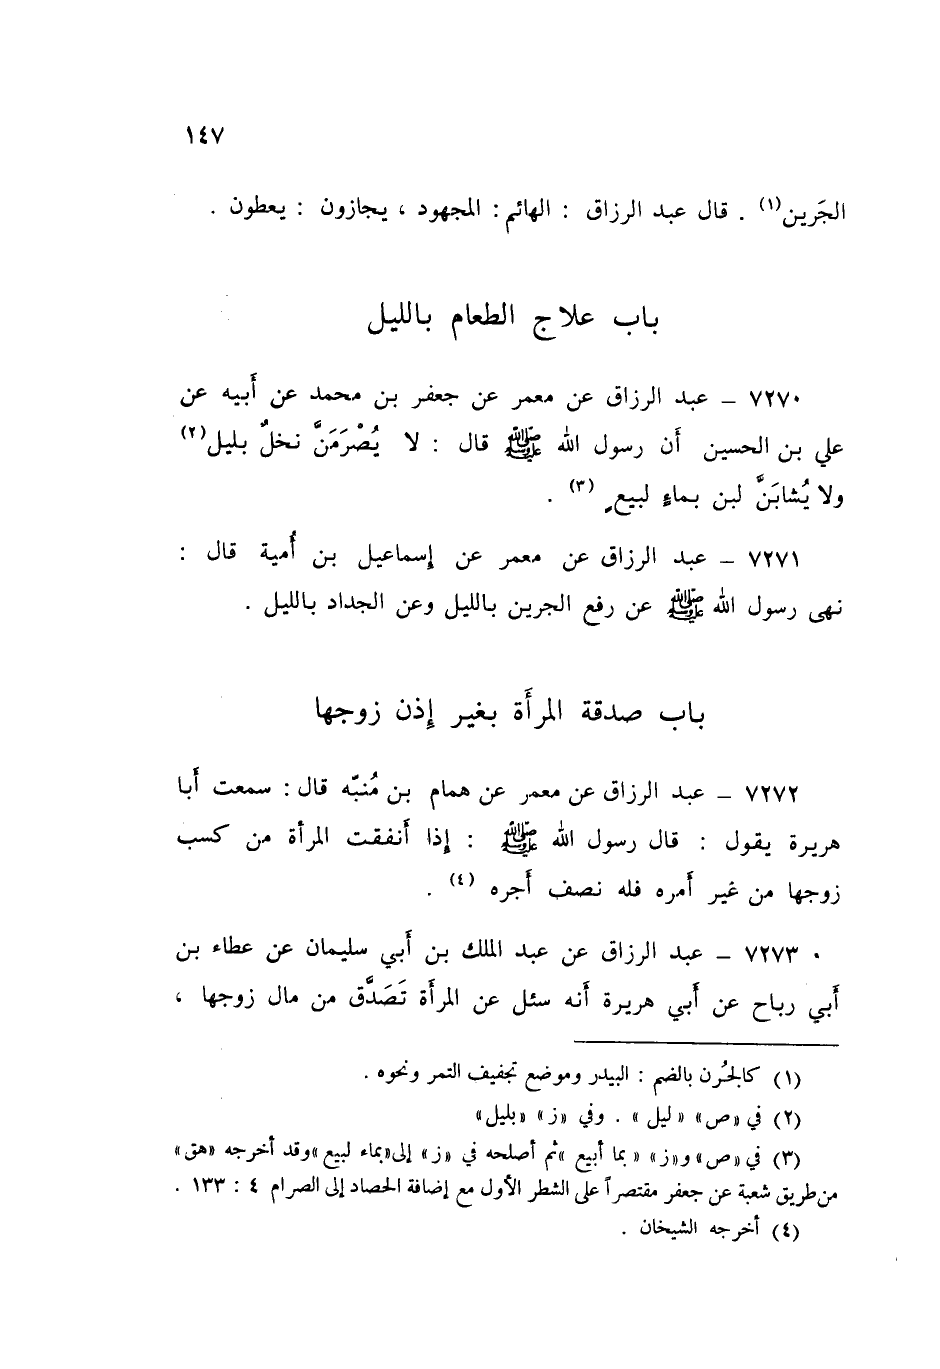 ١٤٧
الجَرين(١) . قال عبد الرزاق : الهائم : المجهود ، يجازون : يعطون .
باب علاج الطعام بالليل
٧٢٧٠ – عبد الرزاق عن معمر عن جعفر بن محمد عن أَبيه عن
علي بن الحسين أن رسول الله ﷺ قال : لا يُصْرَمَنَّ نخلٌ بليل(٢)
ولا يُشابَنَّ لبن بماءٍ لبيعٍ (٣) .
٧٢٧١ – عبد الرزاق عن معمر عن إسماعيل بن أُمية قال :
نهى رسول الله ﷺ عن رفع الجرين بالليل وعن الجداد بالليل .
باب صدقة المرأَة بغير إِذن زوجها
٧٢٧٢ – عبد الرزاق عن معمر عن همام بن مُنبّه قال : سمعت أَبا
هريرة يقول : قال رسول الله ﷺ : إِذا أَنفقت المرأة من كسب
زوجها من غير أَمره فله نصف أَجره (٤) .
٧٢٧٣ – عبد الرزاق عن عبد الملك بن أَبي سليمان عن عطاء بن
أَبي رباح عن أَبي هريرة أَنه سئل عن المرأَة تَصَدَّق من مال زوجها ،
(١) كالجُرن بالضم : البيدر وموضع تجفيف التمر ونحوه .
(٢) في «ص» «ليل» . وفي «ز» «بليل»
(٣) في «ص» و«ز» «بما أبيع» ثم أصلحه في «ز» إلى«بماء لبيع»وقد أخرجه «هق»
من طريق شعبة عن جعفر مقتصراً على الشطر الأول مع إضافة الحصاد إلى الصرام ٤ : ١٣٣ .
(٤) أخرجه الشيخان .